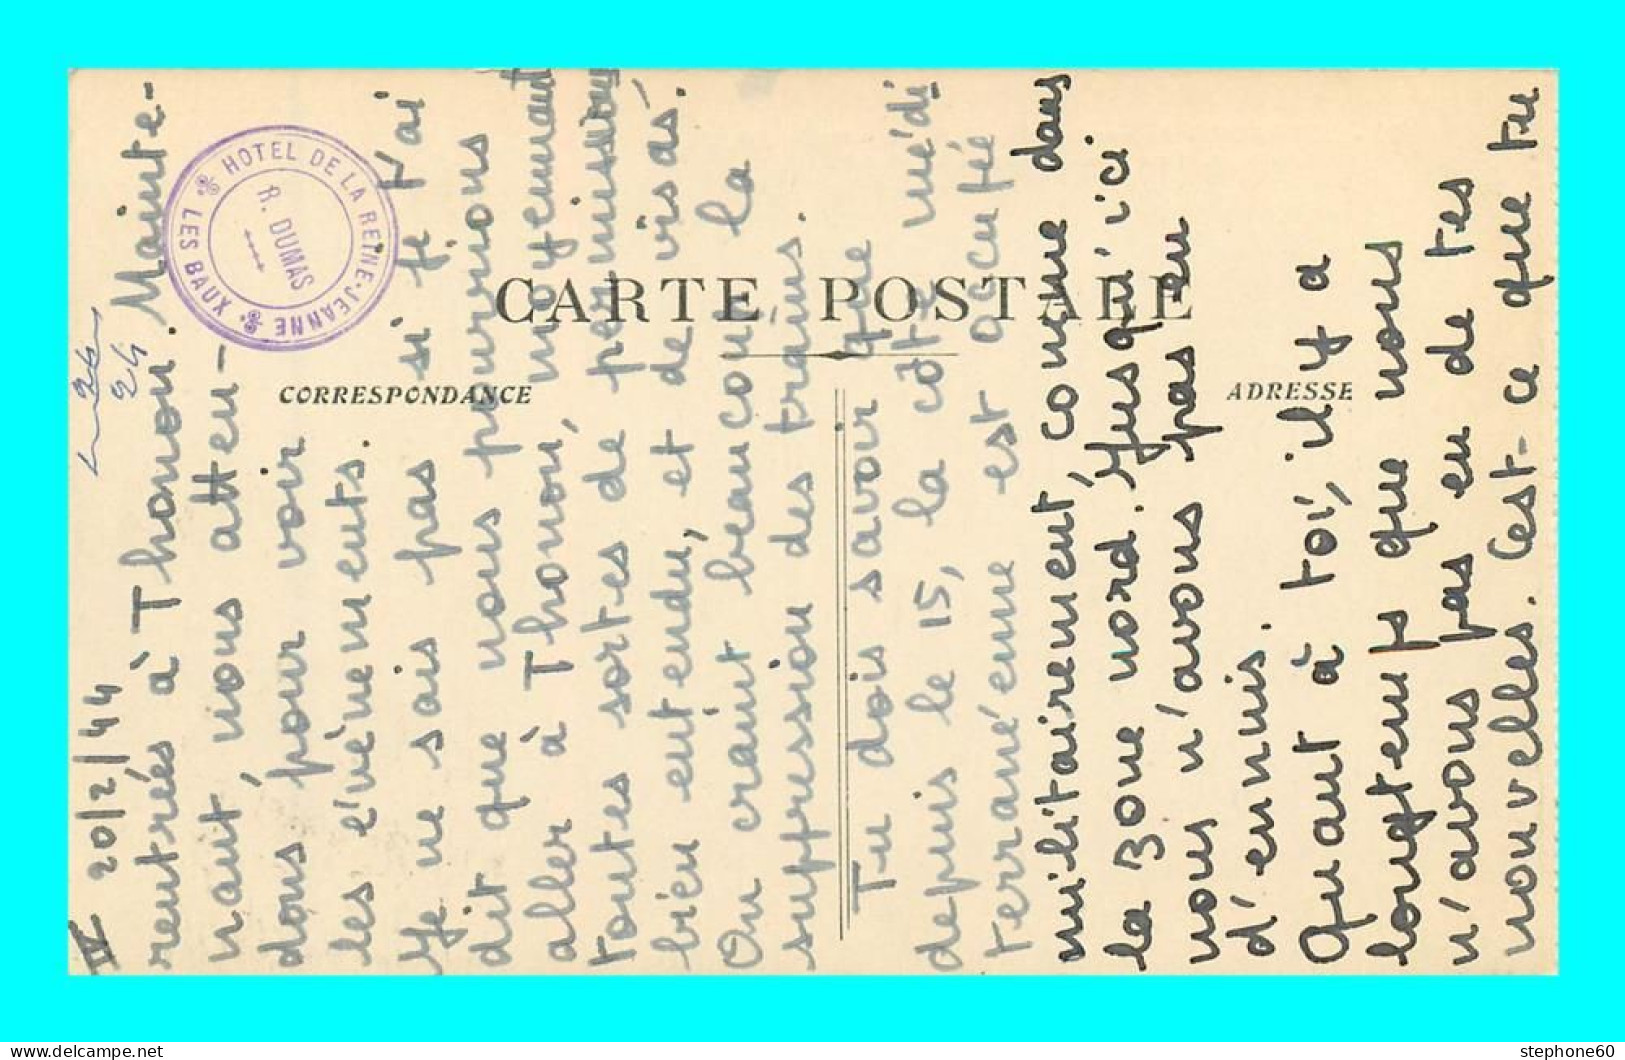 IV 20/2/44
rentrées à Thonon. Mainte-
nant, nous atten-
dons pour voir
les évènements.
Je ne sais pas si je t'ai
dit que nous pourrions
aller à Thonon, moyennant
toutes sortes de permissions
bien entendu, et de visas.
On craint beaucoup la
suppression des trains.
Tu dois savoir que
depuis le 15, la côte médi
terranéenne est occupée
militairement, comme dans
la zone nord. Jusqu'ici
nous n'avons pas eu
d'ennuis.
Quant à toi, il y a
longtemps que nous
n'avons pas eu de tes
nouvelles. Est-ce que tu
HOTEL DE LA REINE-JEANNE
LES BAUX
R. DUMAS
24
CARTE POSTALE
CORRESPONDANCE
ADRESSE
stephone60